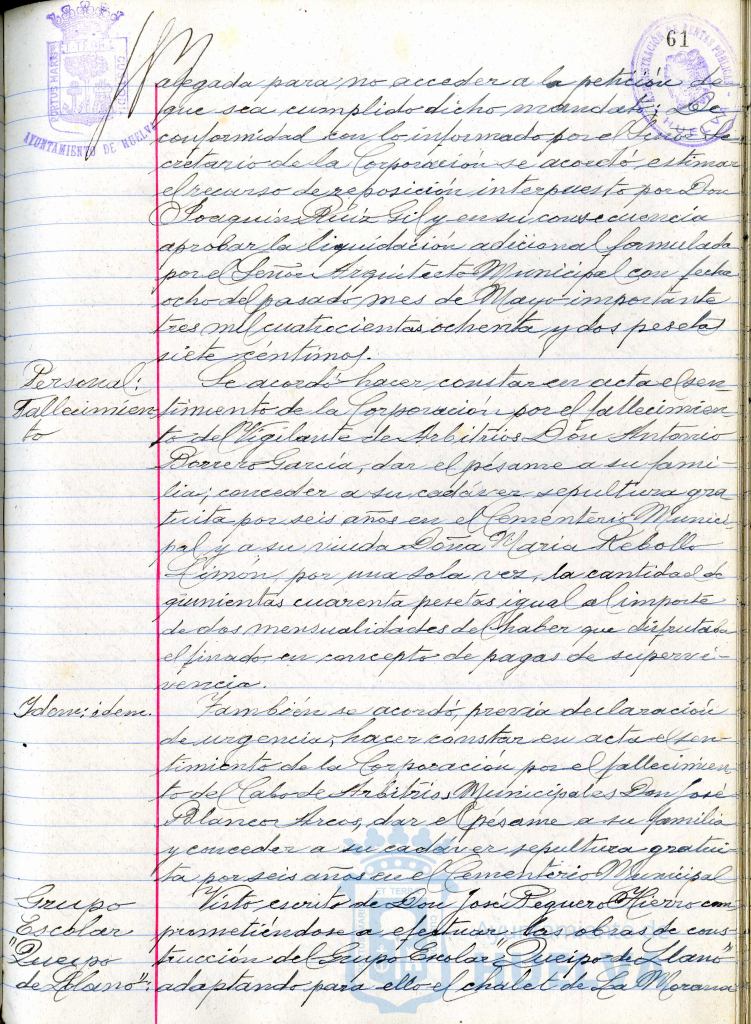 61
PORTUS MARIS ET TERRAE CUSTODIA
AYUNTAMIENTO DE HUELVA
HUELVA
alegada para no acceder a la petición de
que sea cumplido dicho mandato; De
conformidad con lo informado por el Señor Se-
cretario de la Corporación se acordó estimar
el recurso de reposición interpuesto por Don
Joaquín Ruiz Gil y en su consecuencia
aprobar la liquidación adicional formulada
por el Señor Arquitecto Municipal con fecha
ocho del pasado mes de Mayo importante
tres mil cuatrocientas ochenta y dos pesetas
siete céntimos.
Personal:
Fallecimien-
to
Se acordó hacer constar en acta el sen-
timiento de la Corporación por el fallecimien-
to del Vigilante de Arbitrios Don Antonio
Borrero García, dar el pésame a su fami-
lia; conceder a su cadáver sepultura gra-
tuita por seis años en el Cementerio Munici-
pal y a su viuda Doña María Rebollo
Limón, por una sola vez, la cantidad de
quinientas cuarenta pesetas igual al importe
de dos mensualidades del haber que disfrutaba
el finado en concepto de pagas de supervi-
vencia.
Idem: idem.
También se acordó, previa declaración
de urgencia, hacer constar en acta el sen-
timiento de la Corporación por el fallecimien-
to del Cabo de Arbitrios Municipales Don José
Blanco Arcos, dar el pésame a su familia
y conceder a su cadáver sepultura gratui-
ta por seis años en el Cementerio Municipal
Grupo
Escolar
"Queipo
de Llano":
Visto escrito de Don José Reguero Hierro com-
prometiéndose a efectuar las obras de cons-
trucción del Grupo Escolar "Queipo de Llano"
adaptando para ello el chalet de La Morana
Ayuntamiento de
HUELVA